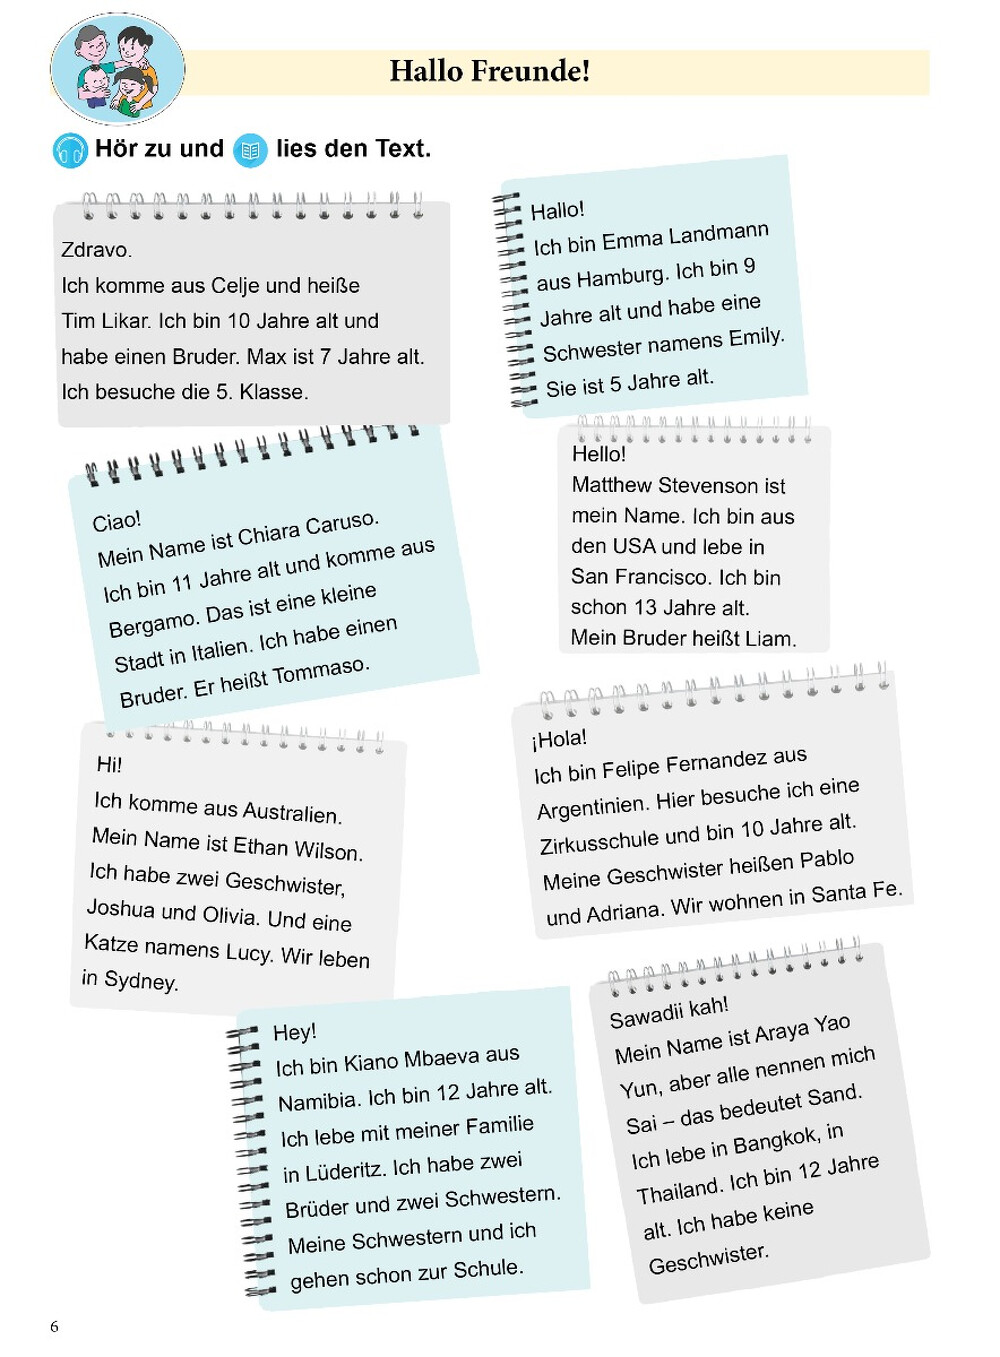 Hallo Freunde!
Hör zu und lies den Text.
Zdravo.
Ich komme aus Celje und heiße
Tim Likar. Ich bin 10 Jahre alt und
habe einen Bruder. Max ist 7 Jahre alt.
Ich besuche die 5. Klasse.
Hallo!
Ich bin Emma Landmann
aus Hamburg. Ich bin 9
Jahre alt und habe eine
Schwester namens Emily.
Sie ist 5 Jahre alt.
Ciao!
Mein Name ist Chiara Caruso.
Ich bin 11 Jahre alt und komme aus
Bergamo. Das ist eine kleine
Stadt in Italien. Ich habe einen
Bruder. Er heißt Tommaso.
Hello!
Matthew Stevenson ist
mein Name. Ich bin aus
den USA und lebe in
San Francisco. Ich bin
schon 13 Jahre alt.
Mein Bruder heißt Liam.
Hi!
Ich komme aus Australien.
Mein Name ist Ethan Wilson.
Ich habe zwei Geschwister,
Joshua und Olivia. Und eine
Katze namens Lucy. Wir leben
in Sydney.
¡Hola!
Ich bin Felipe Fernandez aus
Argentinien. Hier besuche ich eine
Zirkusschule und bin 10 Jahre alt.
Meine Geschwister heißen Pablo
und Adriana. Wir wohnen in Santa Fe.
Hey!
Ich bin Kiano Mbaeva aus
Namibia. Ich bin 12 Jahre alt.
Ich lebe mit meiner Familie
in Lüderitz. Ich habe zwei
Brüder und zwei Schwestern.
Meine Schwestern und ich
gehen schon zur Schule.
Sawadii kah!
Mein Name ist Araya Yao
Yun, aber alle nennen mich
Sai – das bedeutet Sand.
Ich lebe in Bangkok, in
Thailand. Ich bin 12 Jahre
alt. Ich habe keine
Geschwister.
6